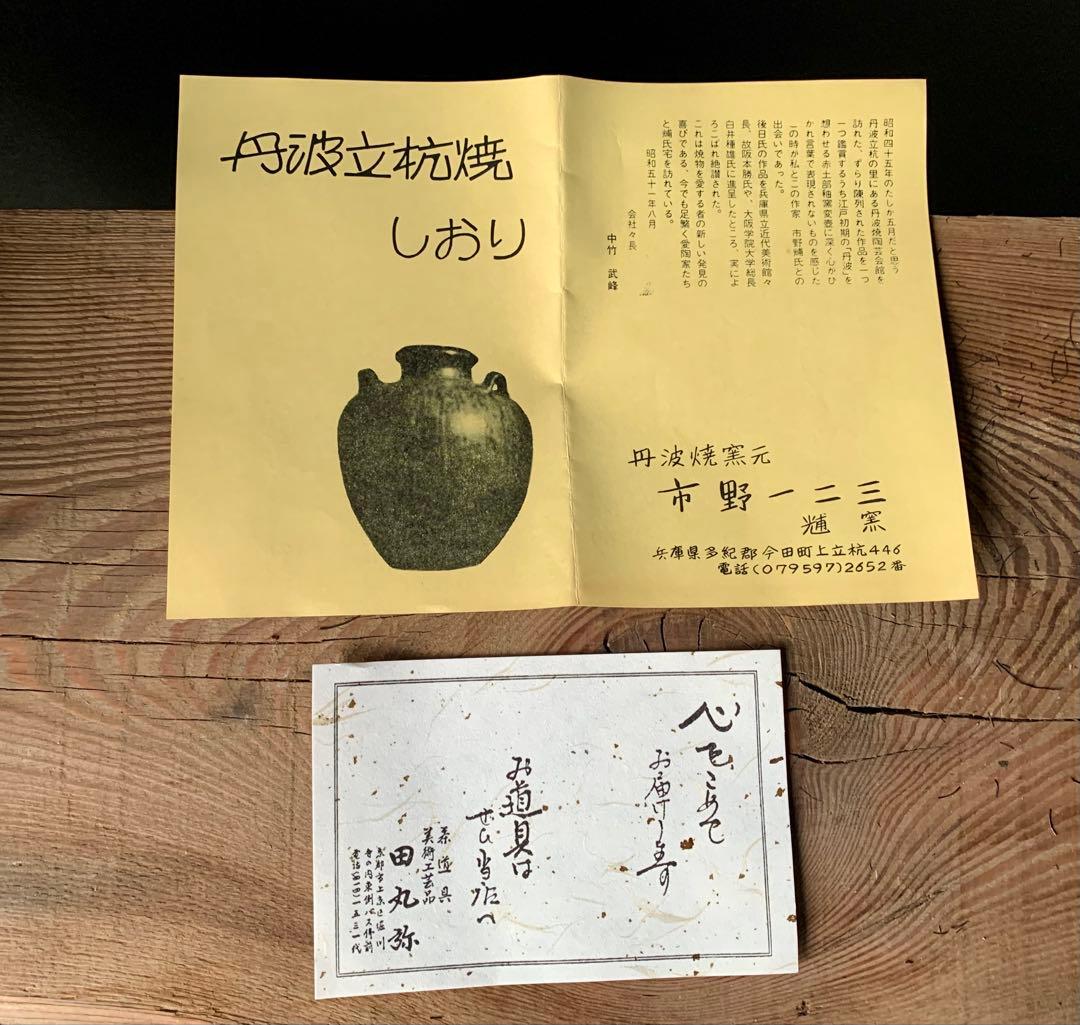 丹波立杭焼
しおり
昭和四十五年のたしか五月だと思う
丹波立杭の里にある丹波焼陶芸会館を
訪れた、ずらり陳列された作品を一つ
一つ鑑賞するうち江戸初期の「丹波」を
想わせる赤土部釉窯変壺に深く心がひ
かれ言葉で表現されないものを感じた
この時が私とこの作家 市野 氏との
出会いであった。
後日氏の作品を兵庫県立近代美術館々
長、故阪本勝氏や、大阪学院大学総長
白井種雄氏に進呈したところ、実によ
ろこばれ絶讃された。
これは焼物を愛する者の新しい発見の
喜びである、今でも足繁く愛陶家たち
と 氏宅を訪れている。
昭和五十一年八月
会社々長
中竹 武峰
丹波焼窯元
市野一二三
窯
兵庫県多紀郡今田町上立杭446
電話(079597)2652番
心をこめて
お届けします
お道具は
ぜひ当店へ
茶道具
美術工芸品
田丸弥
京都市上京区堀川
寺の内東側バス停前
電話(四一四)一五三一代